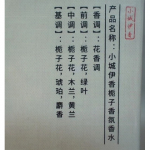 小城伊香
产品名称：小城伊香栀子香氛香水
【香调】：花香调
【前调】：栀子花，绿叶
【中调】：栀子花，木兰，黄兰
【基调】：栀子花，琥珀，麝香